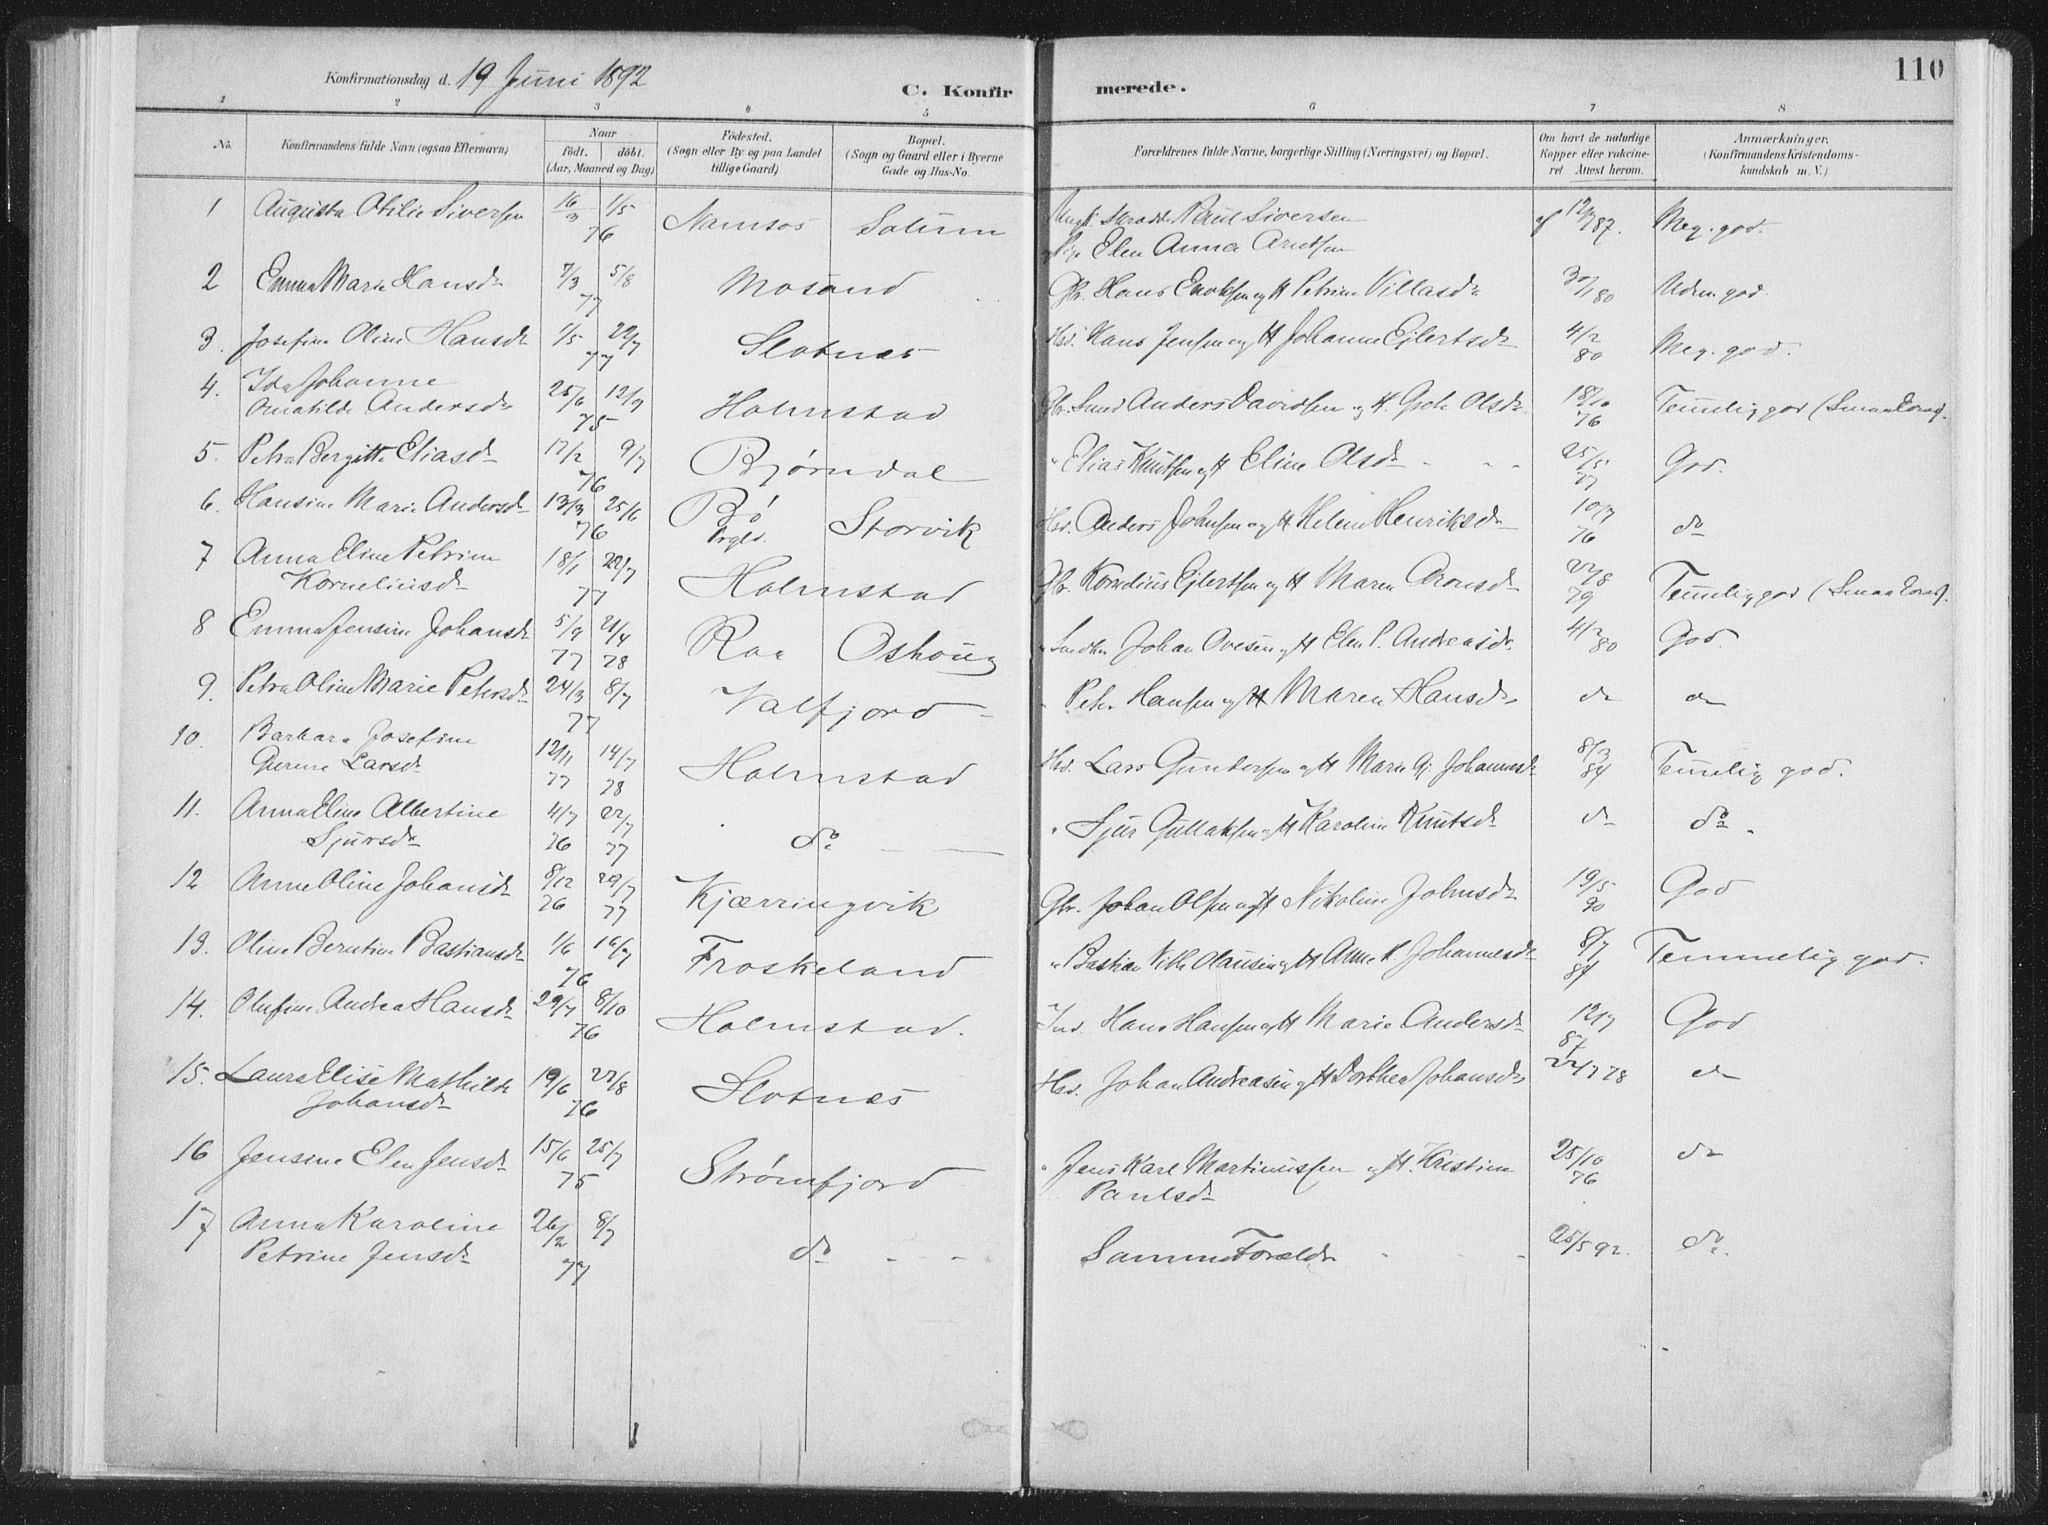 110
Konfirmationsdag d. 19 Juni 1892
C. Konfirmerede.
1 2 3 4 5 6 7 8
No. Konfirmandens fulde Navn (ogsaa Efternavn) Naar födt. döbt. (Aar, Maaned og Dag) Födested. (Sogn eller By og paa Landet tillige Gaard) Bopæl. (Sogn og Gaard eller i Byerne Gade og Hus-No. Forældrenes fulde Navne, borgerlige Stilling (Næringsvei) og Bopæl. Om havt de naturlige Kopper eller vakcineret Attest herom. Anmærkninger. (Konfirmandens Kristendomskundskab m. V.)
1 Augusta Otilie Siversen 16/3 1/5 76 Namsos Solum Paul Siversen 12/7 87. Meg. god.
Elen Anna Arntsen
2 Emma Marie Hansdr 7/3 5/8 77 Mosand Gbr. Hans Enoksen og H Petrine Villasdr 30/1 80 Udm. god
3. Josefine Oline Hansdr 1/5 22/7 77 Slotnes Hsd. Hans Jensen og H Johanne Ejlertsdr 4/2 80 Meg. god.
4. Ida Johanne
Omatilde Andersdr 25/6 12/9 75 Holmstad Gbr. Lund Anders Davidsen og H. Olsdr 18/10 76 Temmelig god
5. Petra Bergitte Eliasdr 17/2 9/7 76 Bjørndal " Elias Knutsen og H Eline Olsdr - - 25/5 77 God.
6. Hansine Marie Andersdr 13/3 25/6 76 Bö Prgld. Storvik Hsd. Anders Johnsen og H Helene Henriksdr 10/7 76 do
7 Anna Eline Petrine
Korneliusdr 18/1 22/7 77 Holmstad Gbr. Kornelius Ejlertsen og H Maren Aronsdr 22/8 79 Temmelig god
8 Emma Jensine Johansdr 5/9 77 21/4 78 Roa Oshoug Johan Ovesen og H Elen P. Andreasdr 4/2 80 God.
9. Petra Oline Marie Petersdr 24/3 8/7 77 Valfjord " Peter Hansen og H Maren Hansdr do do
10. Barbara Josefine
Gurine Larsdr 12/11 77 14/7 78 Holmstad Hsd. Lars Gundersen og H Marie G. Johannesdr 8/3 84 Temmelig god.
11. Anna Eline Albertine
Sjursdr 4/7 76 22/7 77 do " Sjur Gullaksen og H Karoline Knutsdr do do.
12 Anne Oline Johansdr 8/12 76 29/7 77 Kjærringvik Gbr. Johan Olsen og H Nikoline Johnsdr 19/5 90 God
13. Oline Berntine Bastiansdr 1/6 16/7 76 Froskeland " Bastian Olausen og H Anne K Johannesdr 8/7 84 Temmelig god.
14. Olufine Andrea Hansdr 29/7 8/10 76 Holmstad. Ind. Hans Hansen og H Marie Andersdr 12/7 87 God
15. Laura Elise Mathilde
Johansdr 19/6 27/8 76 Slotnes Hsd. Johan Andreasen og H Dorthea Johansdr 22/7 78 do
16 Jensine Elen Jensdr 15/6 25/7 75 Strømfjord " Jens Karl Martinussen og H. Kristine
Paulsdr 25/10 76 do
17 Anna Karoline
Petrine Jensdr 26/2 8/7 77 do - - Samme Foræld. 25/5 92. do.